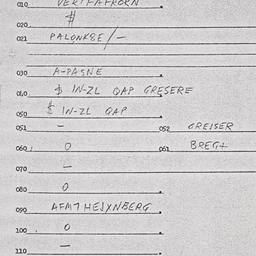 010
020 $
021 PALONKSE/-
030 A-PAGNE
010 $ IN-ZL QAP GRESERE
050 $ IN-ZL QAP
051 — 052 GREISER
060 0 061 BREGT
070 —
080 0
090 AFMT HEJXNBERG
100 0
110 —